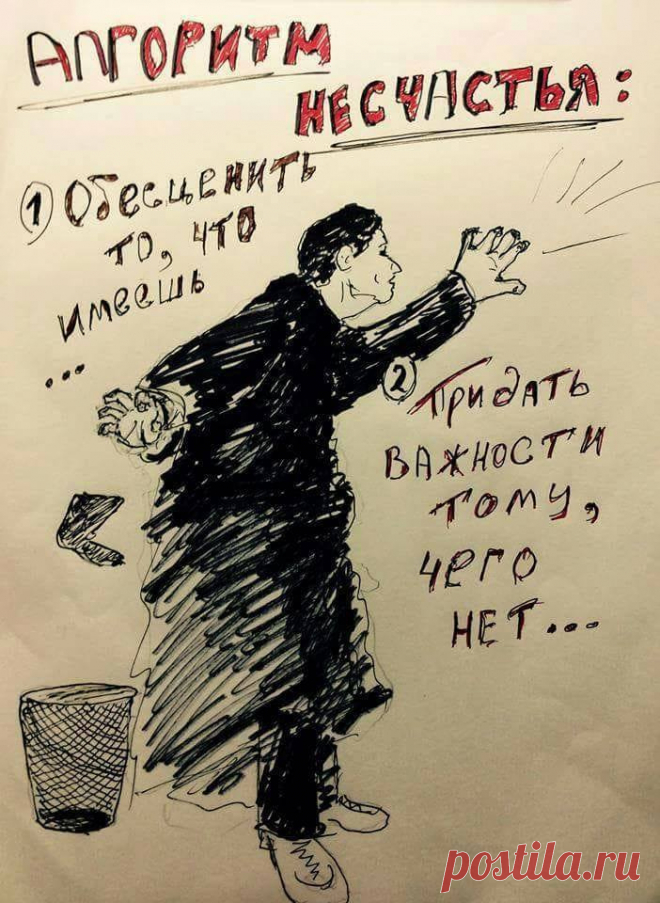 АЛГОРИТМ
НЕСЧАСТЬЯ:
1 Обесценить
то, что
имеешь
...
2 Придать
важности
тому,
чего
нет...
postila.ru